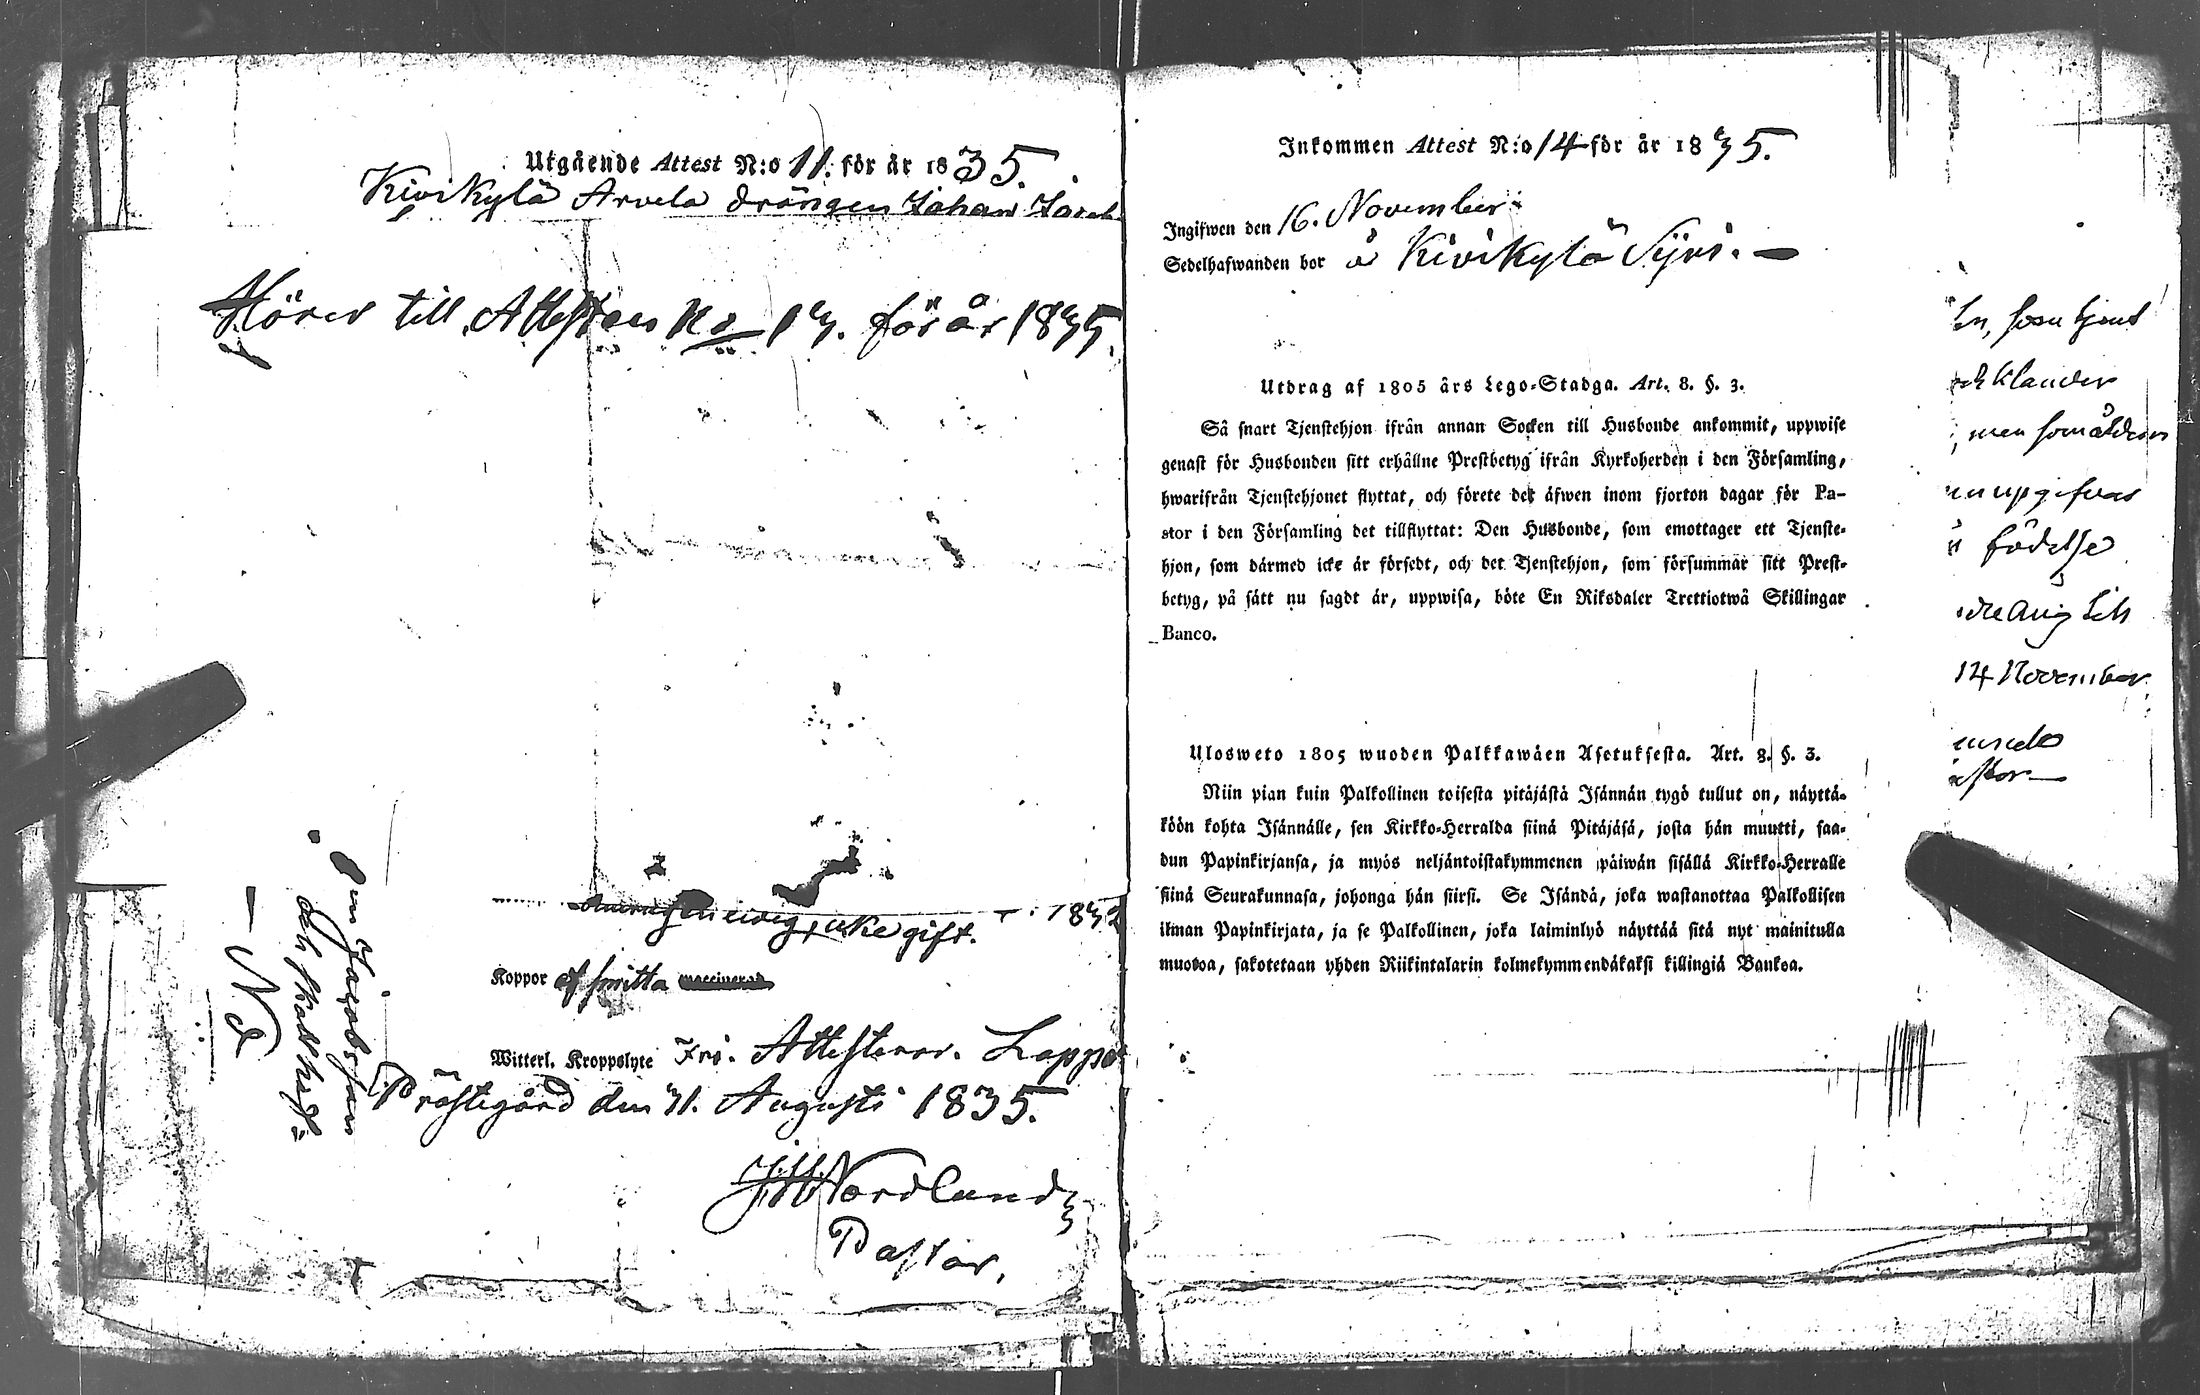 Utgående Attest N:o 11. för år 1835.
Kivikylä Arvela drängen Johan Jacob
Hörer till Attesten No 13. för år 1835.
ewig, icke gift. 1832
Koppor af smitta vaccinerad
Witterl. Kroppslyte Fri. Attesterar. Lappo
Prästegård den 31. Augusti 1835.
Nordlund
Pastor.
Jacobsson
No
Inkommen Attest N:o 14 för år 1835.
Ingifwen den 16. November
Sedelhafwanden bor å Kivikylä Syri. —
Utdrag af 1805 års Lego-Stadga. Art. 8. §. 3.
Så snart Tjenstehjon ifrån annan Socken till Husbonde ankommit, uppwise
genast för Husbonden sitt erhållne Prestbetyg ifrån Kyrkoherden i den Församling,
hwarifrån Tjenstehjonet flyttat, och förete det äfwen inom fjorton dagar för Pa-
stor i den Församling det tillflyttat: Den Husbonde, som emottager ett Tjenste-
hjon, som därmed icke är försedt, och det Tjenstehjon, som försummar sitt Prest-
betyg, på sätt nu sagdt är, uppwisa, böte En Riksdaler Trettiotwå Skillingar
Banco.
Ulosweto 1805 wuoden Palkkawäen Asetuksesta. Art. 8. §. 3.
Niin pian kuin Palkollinen toisesta pitäjästä Isännän tygö tullut on, näyttä-
köön kohta Isännälle, sen Kirkko-Herralda siinä Pitäjäsä, josta hän muutti, saa-
dun Papinkirjansa, ja myös neljäntoistakymmenen päiwän sisällä Kirkko-Herralle
siinä Seurakunnasa, johonga hän siirsi. Se Isändä, joka wastanottaa Palkollisen
ilman Papinkirjata, ja se Palkollinen, joka laiminlyö näyttää sitä nyt mainitulla
muotoa, sakotetaan yhden Riikintalarin kolmekymmendäkaksi killingiä Bankoa.
som tjent
klander
men som ålderen
upgifvas
födelse
14 November